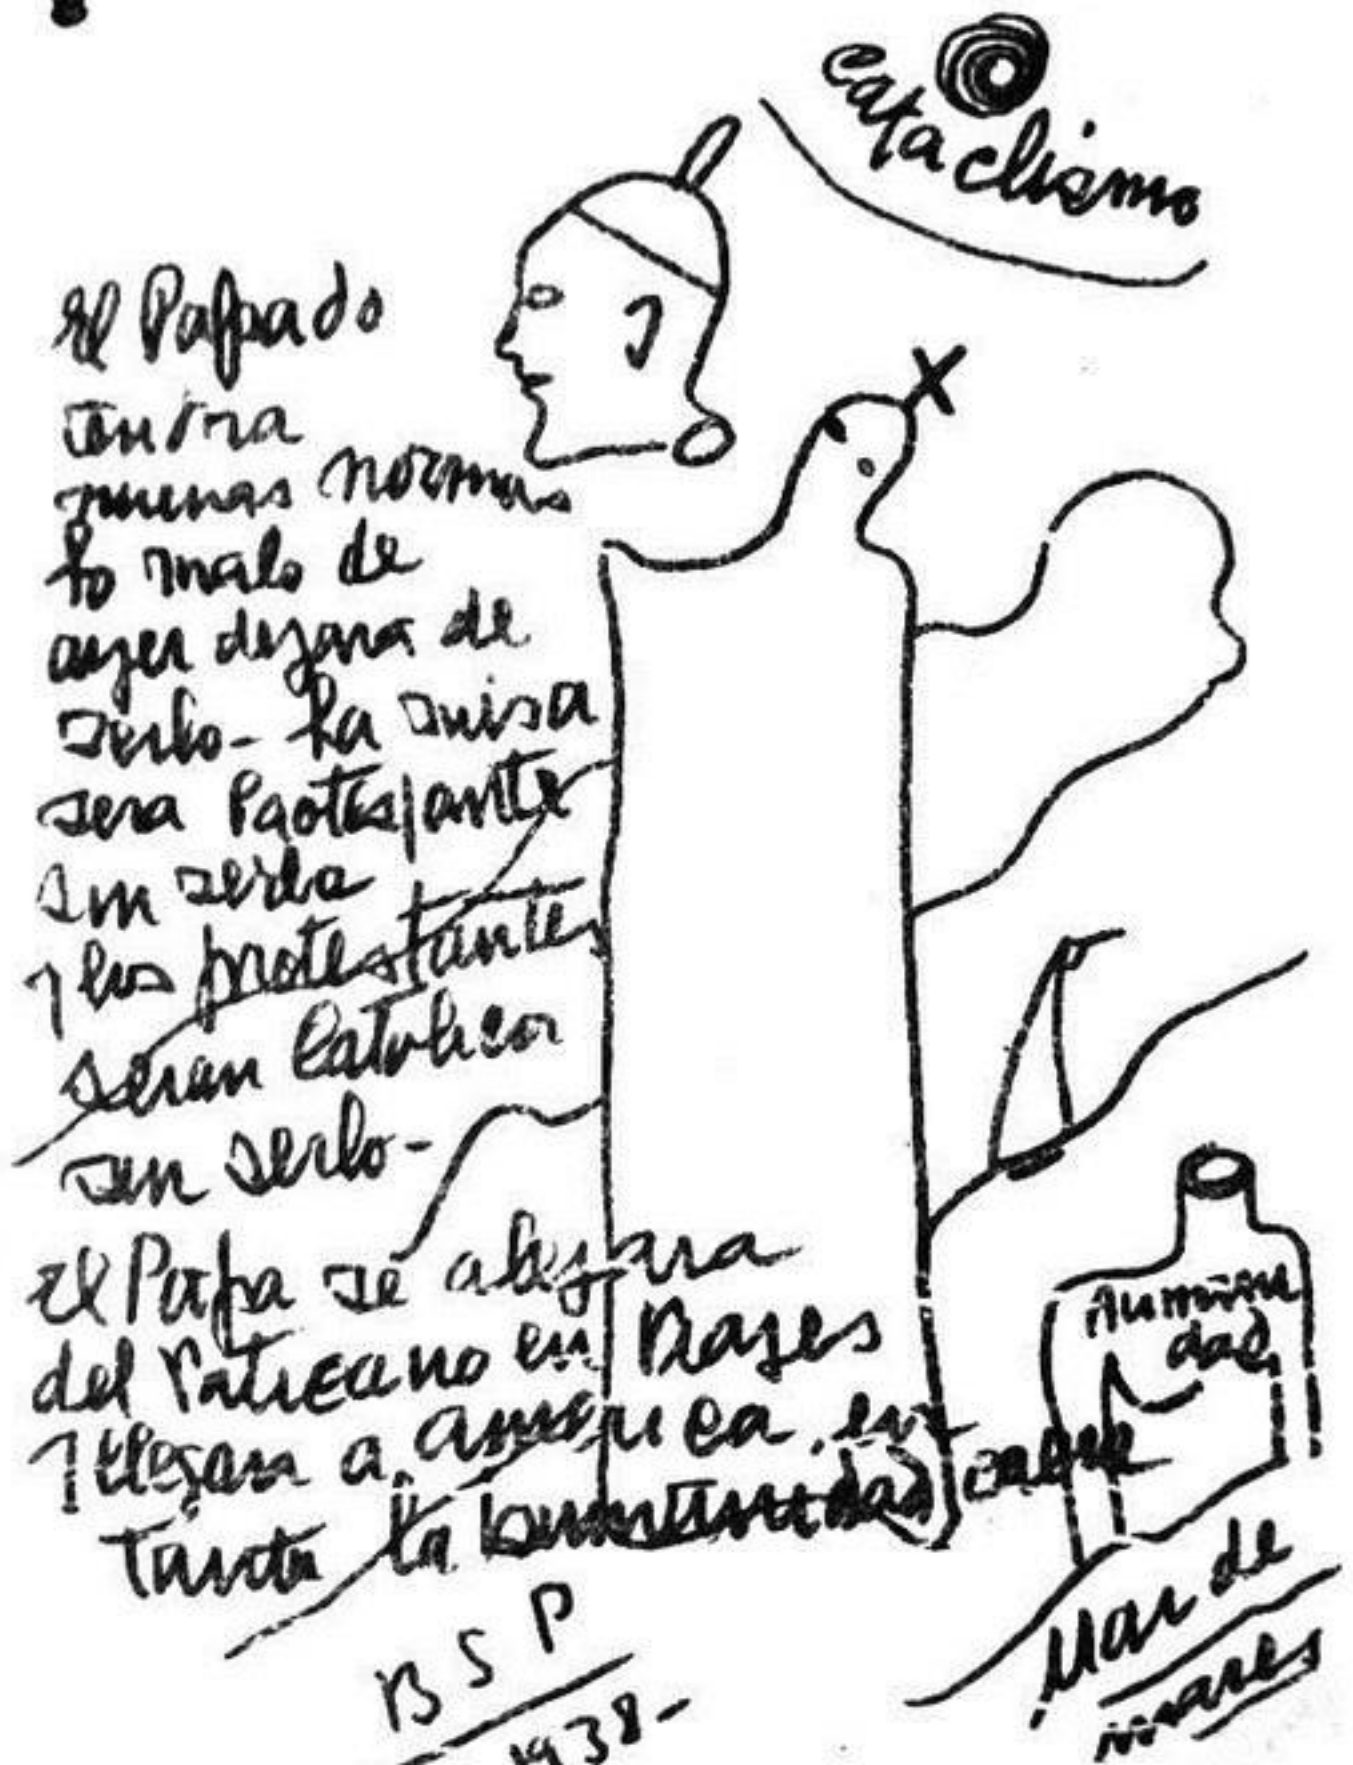 Cataclismo
El Papado
tendra
nuevas normas
lo malo de
ayer dejara de
serlo - La misa
sera Protestante
sin serla
y los protestantes
seran Catolicos
sin serlo -
El Papa se alejara
del Vaticano en viajes
y llegara a america, en
tanto la humanidad caera
Humani
dad
Mar de
mares
BSP
1938-